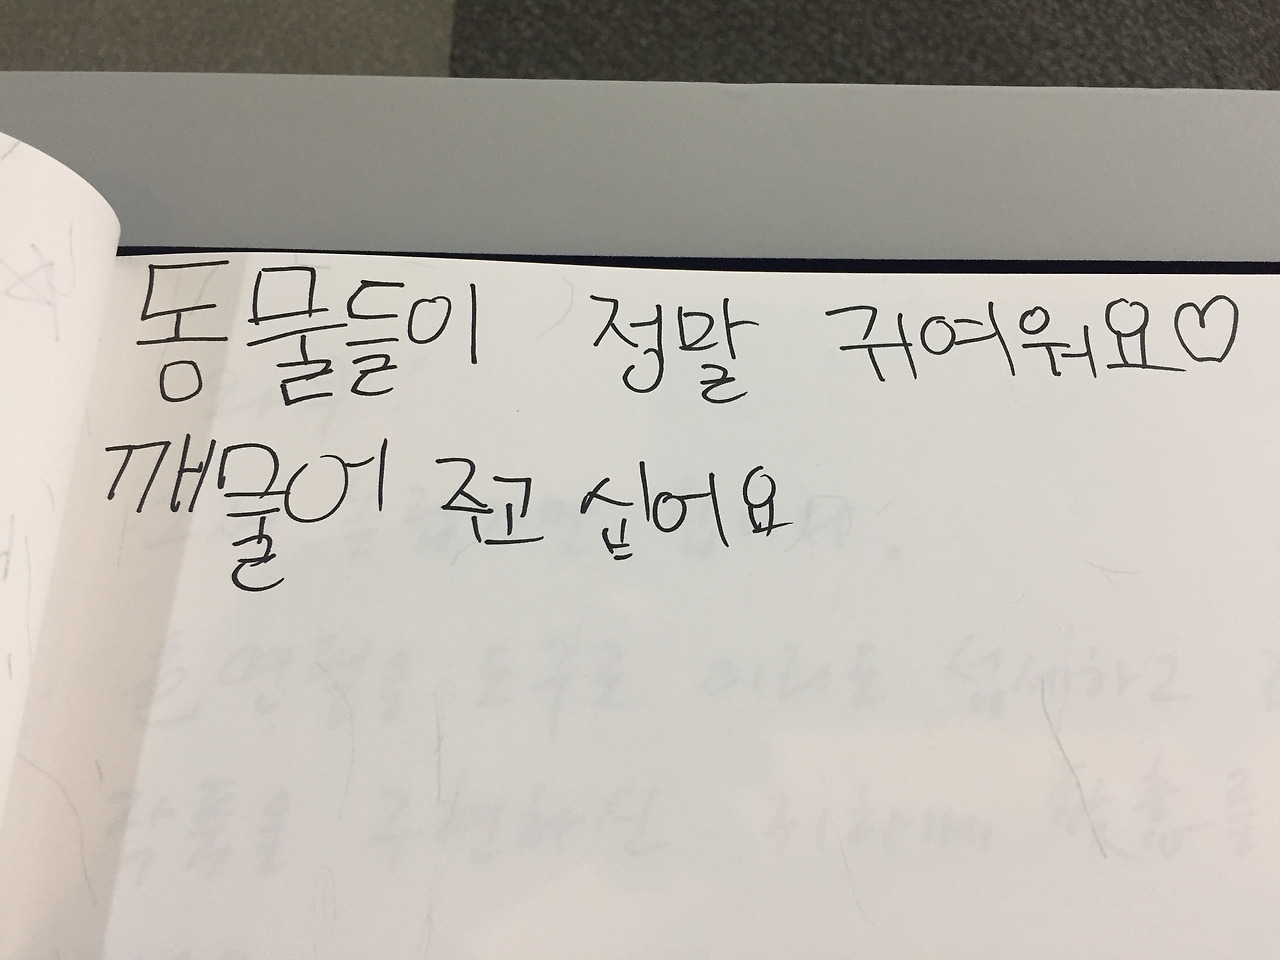 동물들이 정말 귀여워요♡
깨물어 주고 십어요